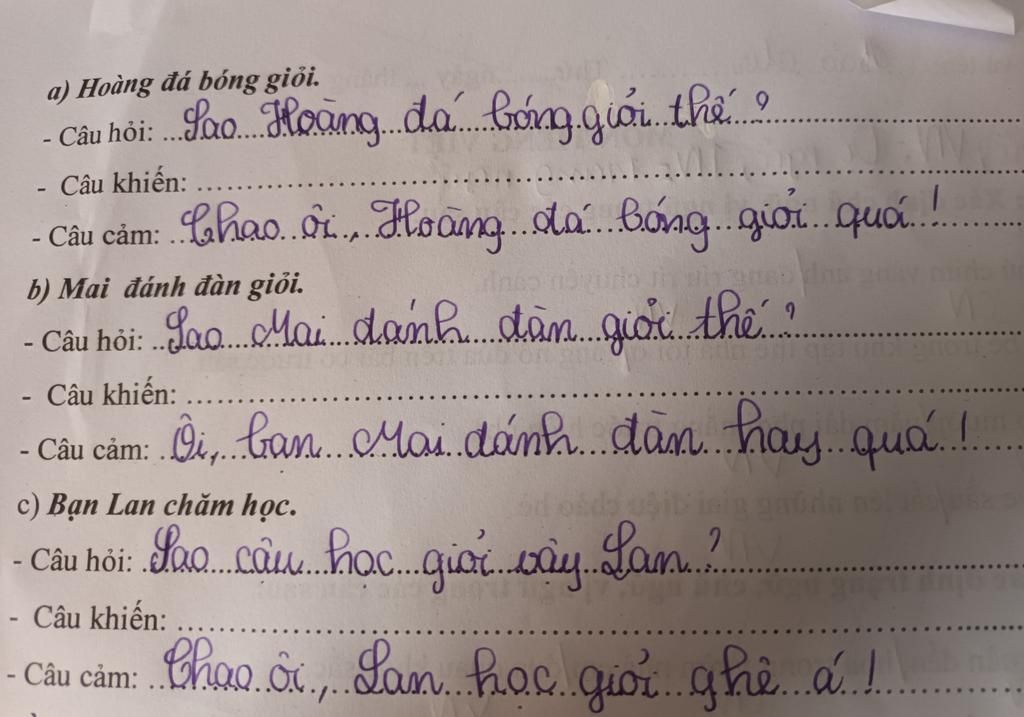 a) Hoàng đá bóng giỏi.
- Câu hỏi: ...Sao Hoàng đá bóng giỏi thế ?
- Câu khiến: ...
- Câu cảm: ...Chao ôi, Hoàng đá bóng giỏi quá !
b) Mai đánh đàn giỏi.
- Câu hỏi: ...Sao Mai đánh đàn giỏi thế ?
- Câu khiến: ...
- Câu cảm: ...Ôi, bạn Mai đánh đàn hay quá !
c) Bạn Lan chăm học.
- Câu hỏi: ...Sao cậu học giỏi vậy Lan ?
- Câu khiến: ...
- Câu cảm: ...Chao ôi, Lan học giỏi ghê á !